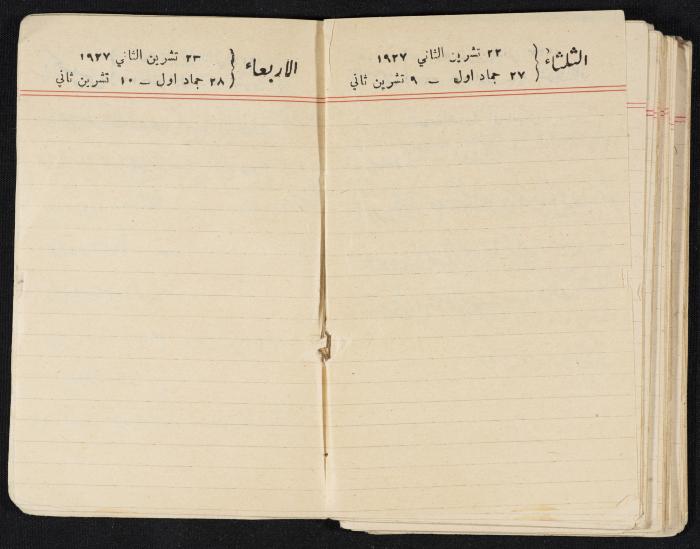 الثلثاء
٢٢ تشرين الثاني ١٩٢٧
٢٧ جماد اول – ٩ تشرين ثاني
الاربعاء
٢٣ تشرين الثاني ١٩٢٧
٢٨ جماد اول – ١٠ تشرين ثاني